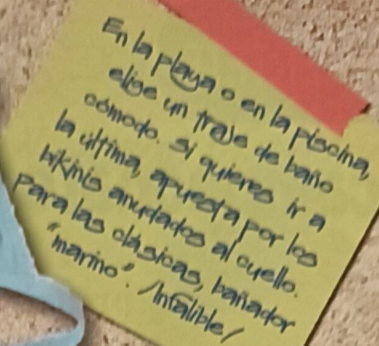 En la playa o en la piscina,
elige un traje de baño
cómodo. Si quieres ir a
la última, apuesta por los
bikinis anudados al cuello.
Para las clásicas, bañador
"marino". ¡Infalible!